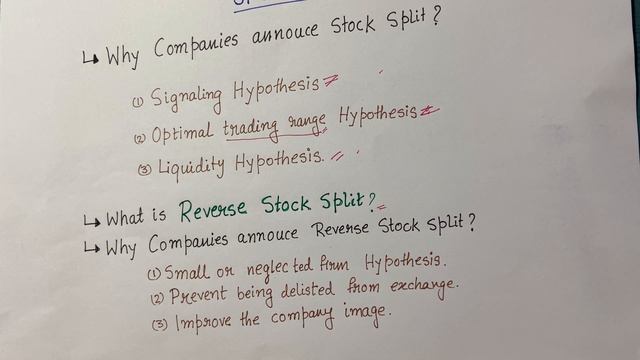 ↳ Why Companies annouce Stock Split?
(1) Signaling Hypothesis
(2) Optimal trading range Hypothesis
(3) Liquidity Hypothesis.
↳ What is Reverse Stock Split?
↳ Why Companies annouce Reverse Stock Split?
(1) Small or neglected firm Hypothesis.
(2) Prevent being delisted from exchange.
(3) Improve the company image.